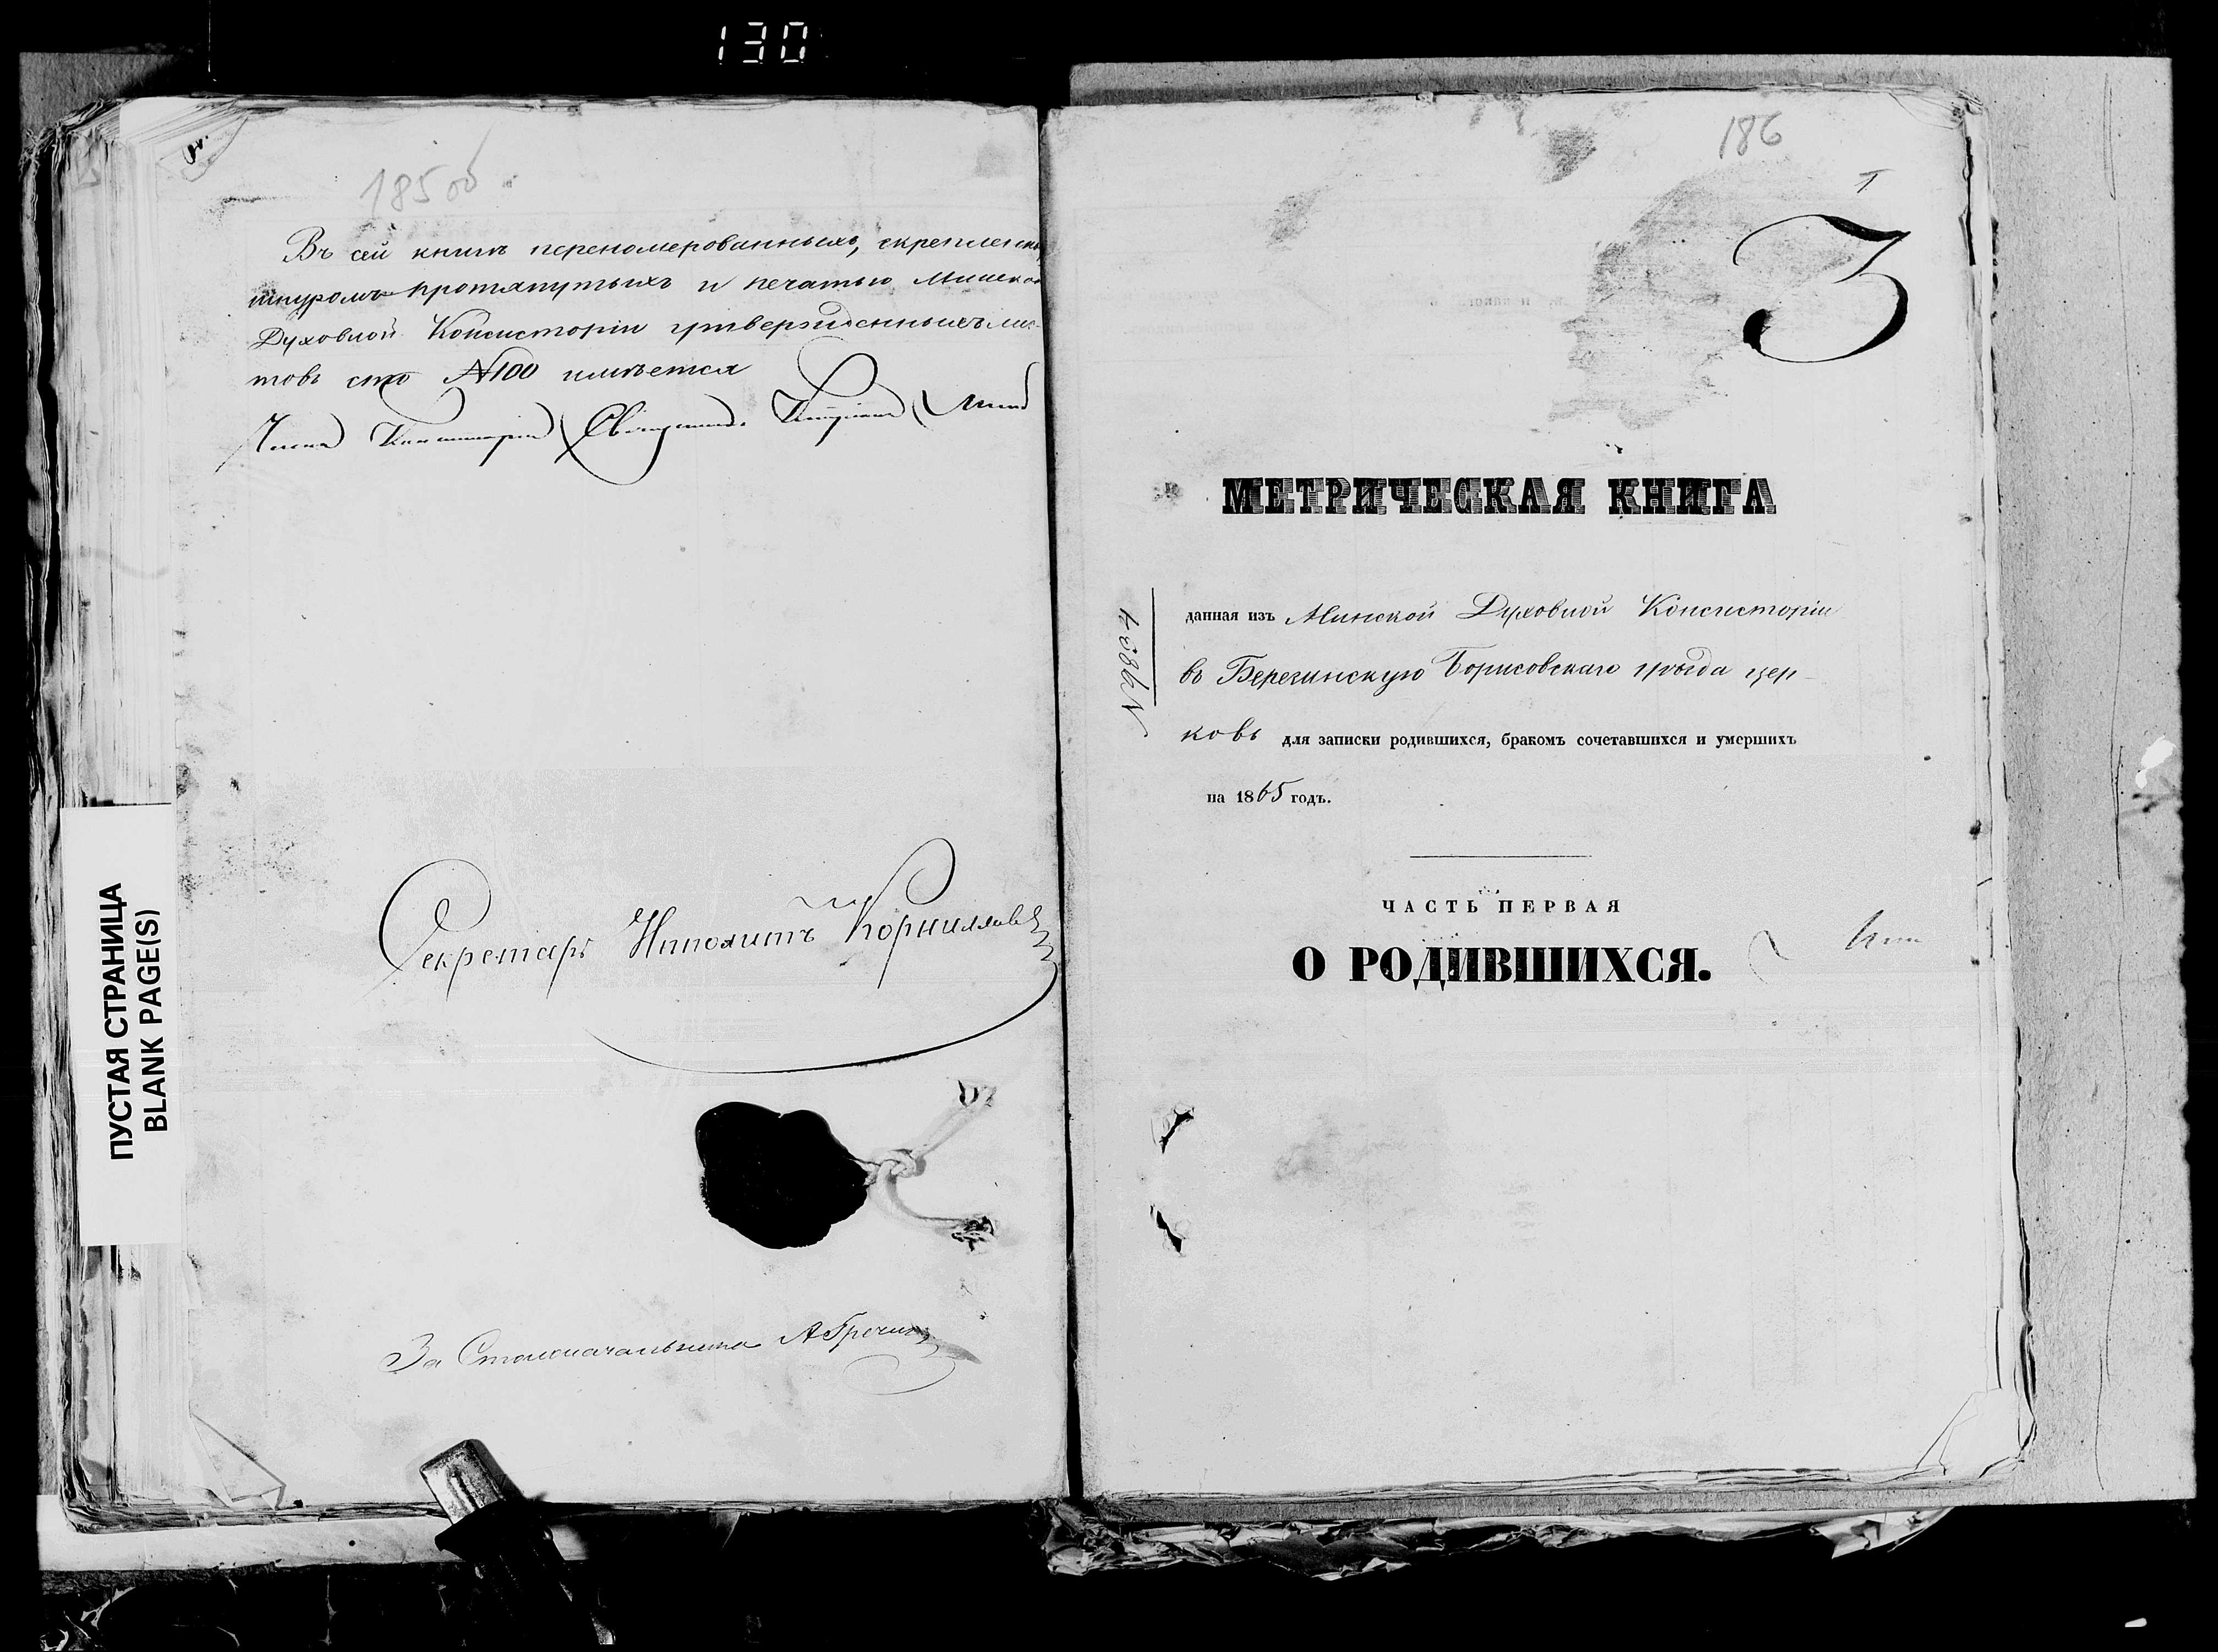 130
185 об
Въ сей книгѣ перенолерованныхъ, скрепленн
шнуромъ протянутыхъ и печатью Минской
Духовной Консисторіи утвержденныхъ лис-
товъ сто №100 имѣется
Членъ Консисторіи Священникъ
Секретарь Ипполитъ Корниловъ
За Столоначальника
ПУСТАЯ СТРАНИЦА
BLANK PAGE(S)
186
3
МЕТРИЧЕСКАЯ КНИГА
данная изъ Минской Духовной Консисторіи
въ Березинскую Борисовскаго уѣзда цер-
ковь для записки родившихся, бракомъ сочетавшихся и умершихъ
на 1865 годъ.
ЧАСТЬ ПЕРВАЯ
О РОДИВШИХСЯ.